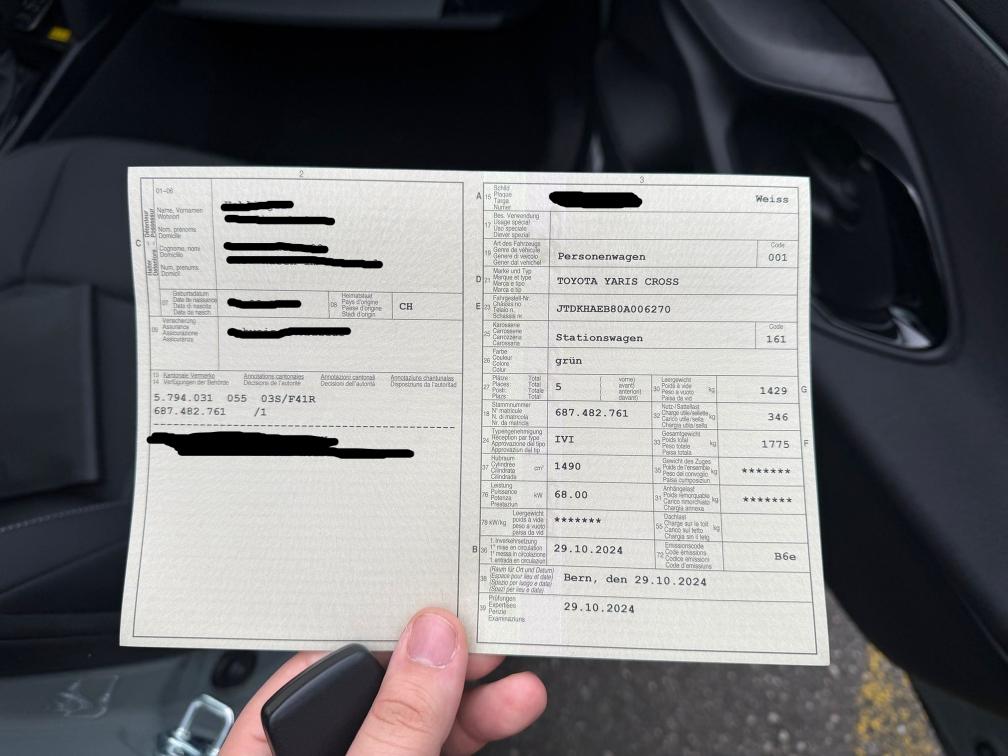 2
01-06
C
Halter
Détenteur
Detentore
Possessur
Name, Vornamen
Wohnort
Nom, prénoms
Domicile
Cognome, nomi
Domicilio
Num, prenums
Domicil
07
Geburtsdatum
Date de naissance
Data di nascita
Data da nasch.
08
Heimatstaat
Pays d'origine
Paese d'origine
Stadi d'origin
CH
09
Versicherung
Assurance
Assicurazione
Assicuranza
13 Kantonale Vermerke Annotations cantonales Annotazioni cantonali Annotaziuns chantunalas
14 Verfügungen der Behörde Décisions de l'autorité Decisioni dell'autorità Disposiziuns da l'autoritad
5.794.031 055 03S/F41R
687.482.761 /1
3
A
15
Schild
Plaque
Targa
Numer
Weiss
17
Bes. Verwendung
Usage spécial
Uso speciale
Diever spezial
19
Art des Fahrzeugs
Genre de véhicule
Genere di veicolo
Gener dal vehichel
Personenwagen
Code
001
D
21
Marke und Typ
Marque et type
Marca e tipo
Marca e tip
TOYOTA YARIS CROSS
E
23
Fahrgestell-Nr.
Châssis no
Telaio n.
Schassis nr.
JTDKHAEB80A006270
25
Karosserie
Carrosserie
Carrozzeria
Carossaria
Stationswagen
Code
161
26
Farbe
Couleur
Colore
Colur
grün
27
Plätze Total
Places: Total
Posti: Totale
Plazs: Total
5
vorne)
avant)
anteriori)
davant)
30
Leergewicht
Poids à vide
Peso a vuoto
Paisa da vid
kg
1429
G
18
Stammnummer
N° matricule
N. di matricola
Nr. da matricla
687.482.761
32
Nutz-/Sattellast
Charge utile/sellette
Carico utile/sella
Chargia utila/sella
kg
346
24
Typengenehmigung
Réception par type
Approvazione del tipo
Approvaziun dal tip
IVI
33
Gesamtgewicht
Poids total
Peso totale
Paisa totala
kg
1775
F
37
Hubraum
Cylindrée
Cilindrata
Cilindrada
cm³
1490
35
Gewicht des Zuges
Poids de l'ensemble
Peso del convoglio
Paisa cumposiziun
kg
*******
76
Leistung
Puissance
Potenza
Prestaziun
kW
68.00
31
Anhängelast
Poids remorquable
Carico rimorchiato
Chargia annexa
kg
*******
78 kW/kg
Leergewicht
poids à vide
peso a vuoto
paisa da vid
*******
55
Dachlast
Charge sur le toit
Carico sul tetto
Chargia sin il tetg
kg
B
36
1. Inverkehrsetzung
1re mise en circulation
1a messa in circolazione
1. entrada en circulaziun
29.10.2024
72
Emissionscode
Code émissions
Codice emissioni
Code d'emissiuns
B6e
38
(Raum für Ort und Datum)
(Espace pour lieu et date)
(Spazio per luogo e data)
(Spazi per lieu e data)
Bern, den 29.10.2024
39
Prüfungen
Expertises
Perizie
Examinaziuns
29.10.2024